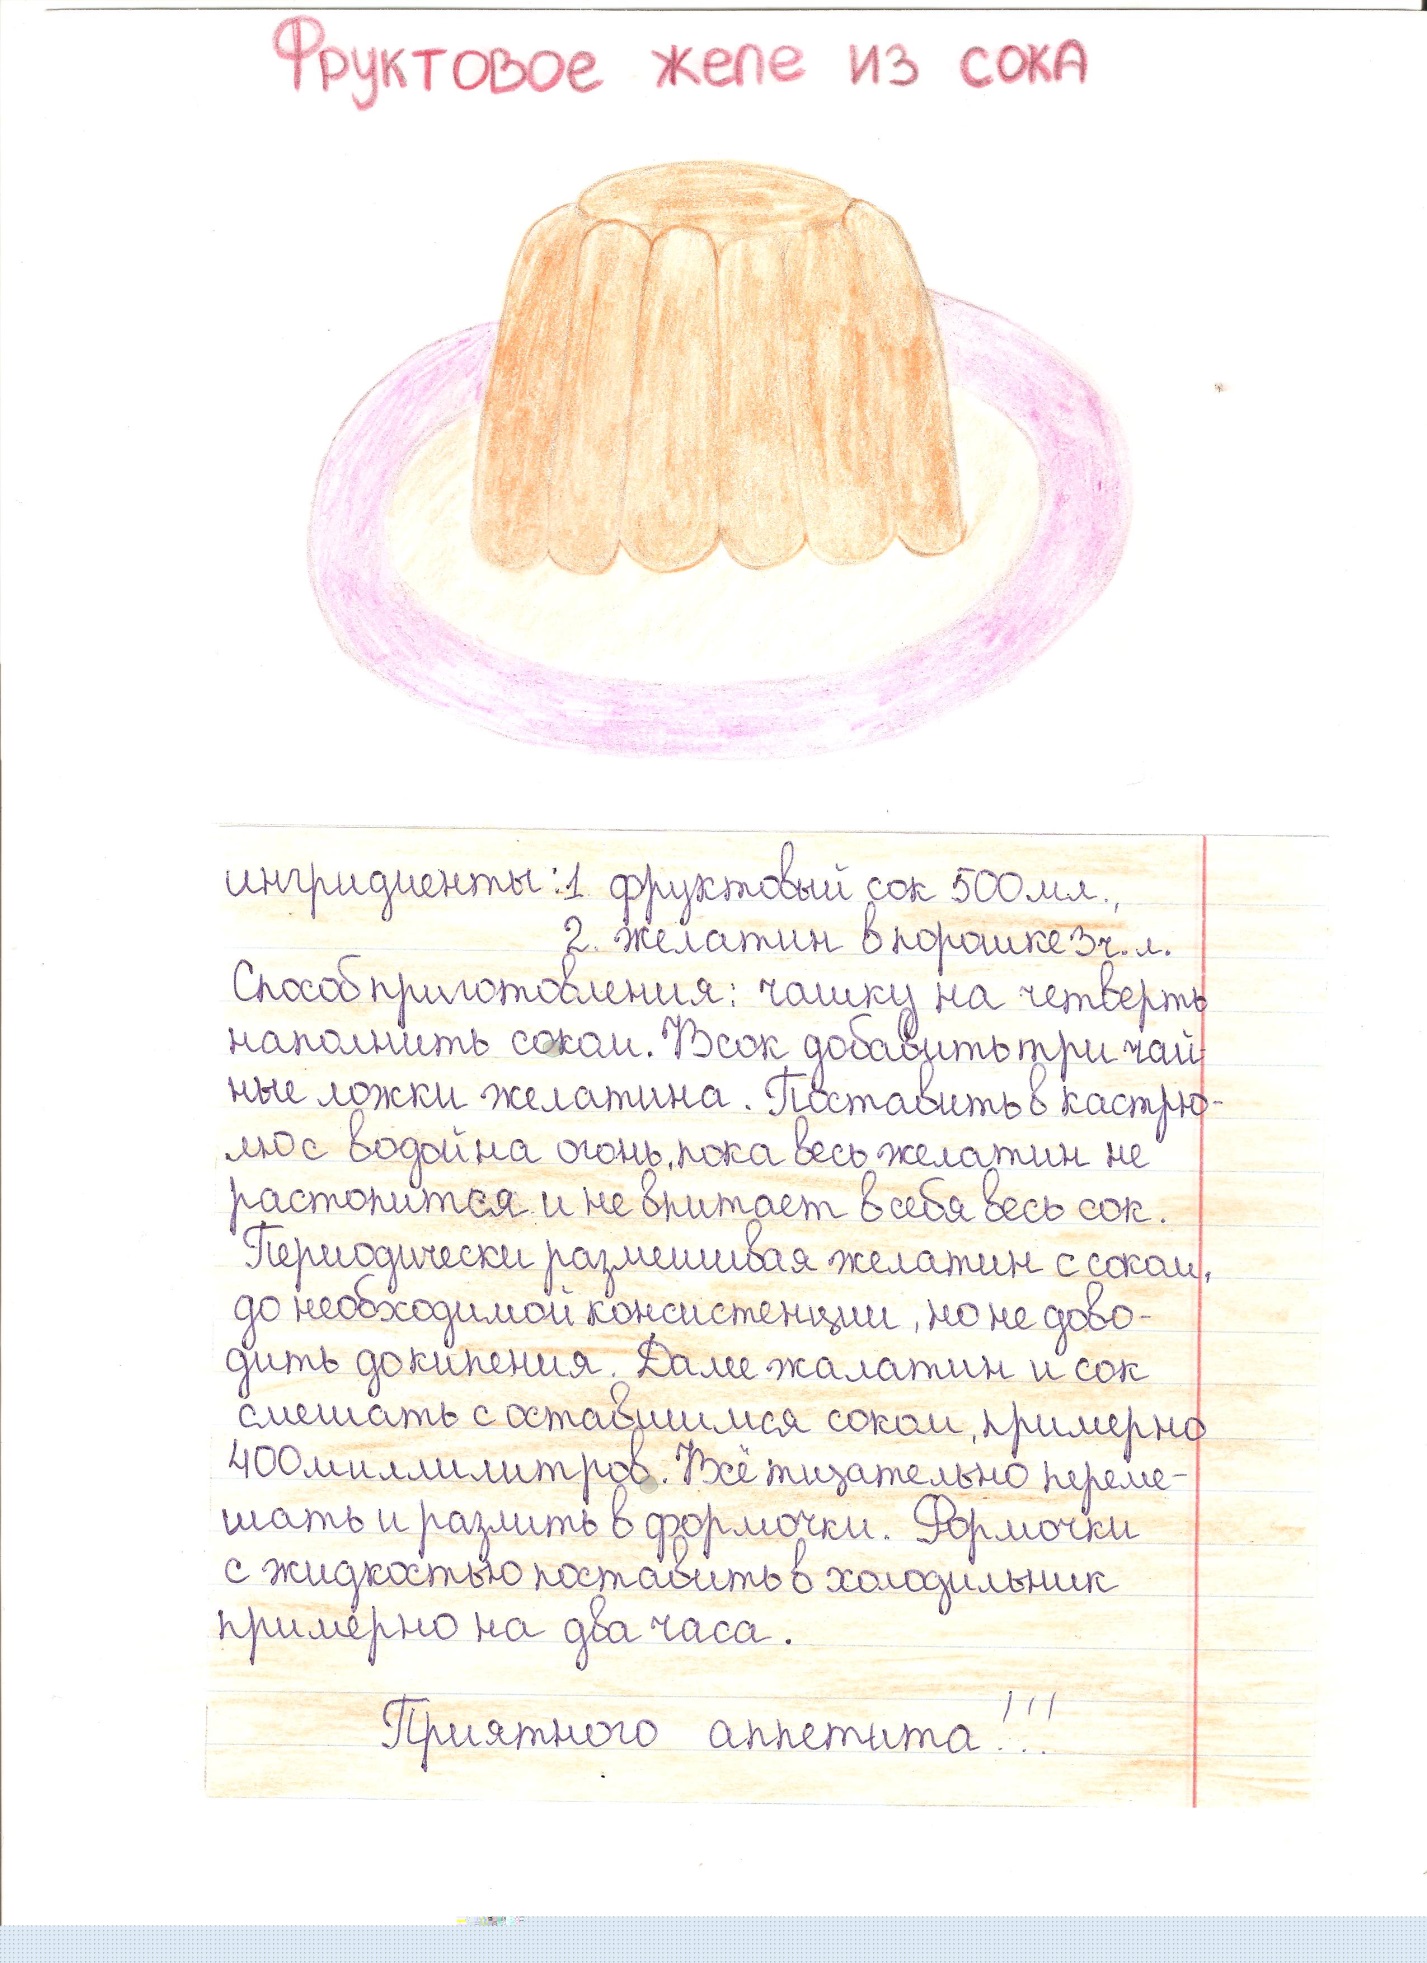 Фруктовое желе из сока
ингридиенты: 1. фруктовый сок 500 мл.,
2. желатин в порошке 3 ч. л.
Способ приготовления: чашку на четверть
наполнить соком. В сок добавить три чай-
ные ложки желатина. Поставить в кастрю-
лю с водой на огонь, пока весь желатин не
растопится и не впитает в себя весь сок.
Периодически размешивая желатин с соком,
до необходимой консистенции, но не дово-
дить до кипения. Далее жалатин и сок
смешать с оставшимся соком, примерно
400 миллилитров. Всё тщательно переме-
шать и разлить в формочки. Формочки
с жидкостью поставить в холодильник
примерно на два часа.
Приятного аппетита!!!